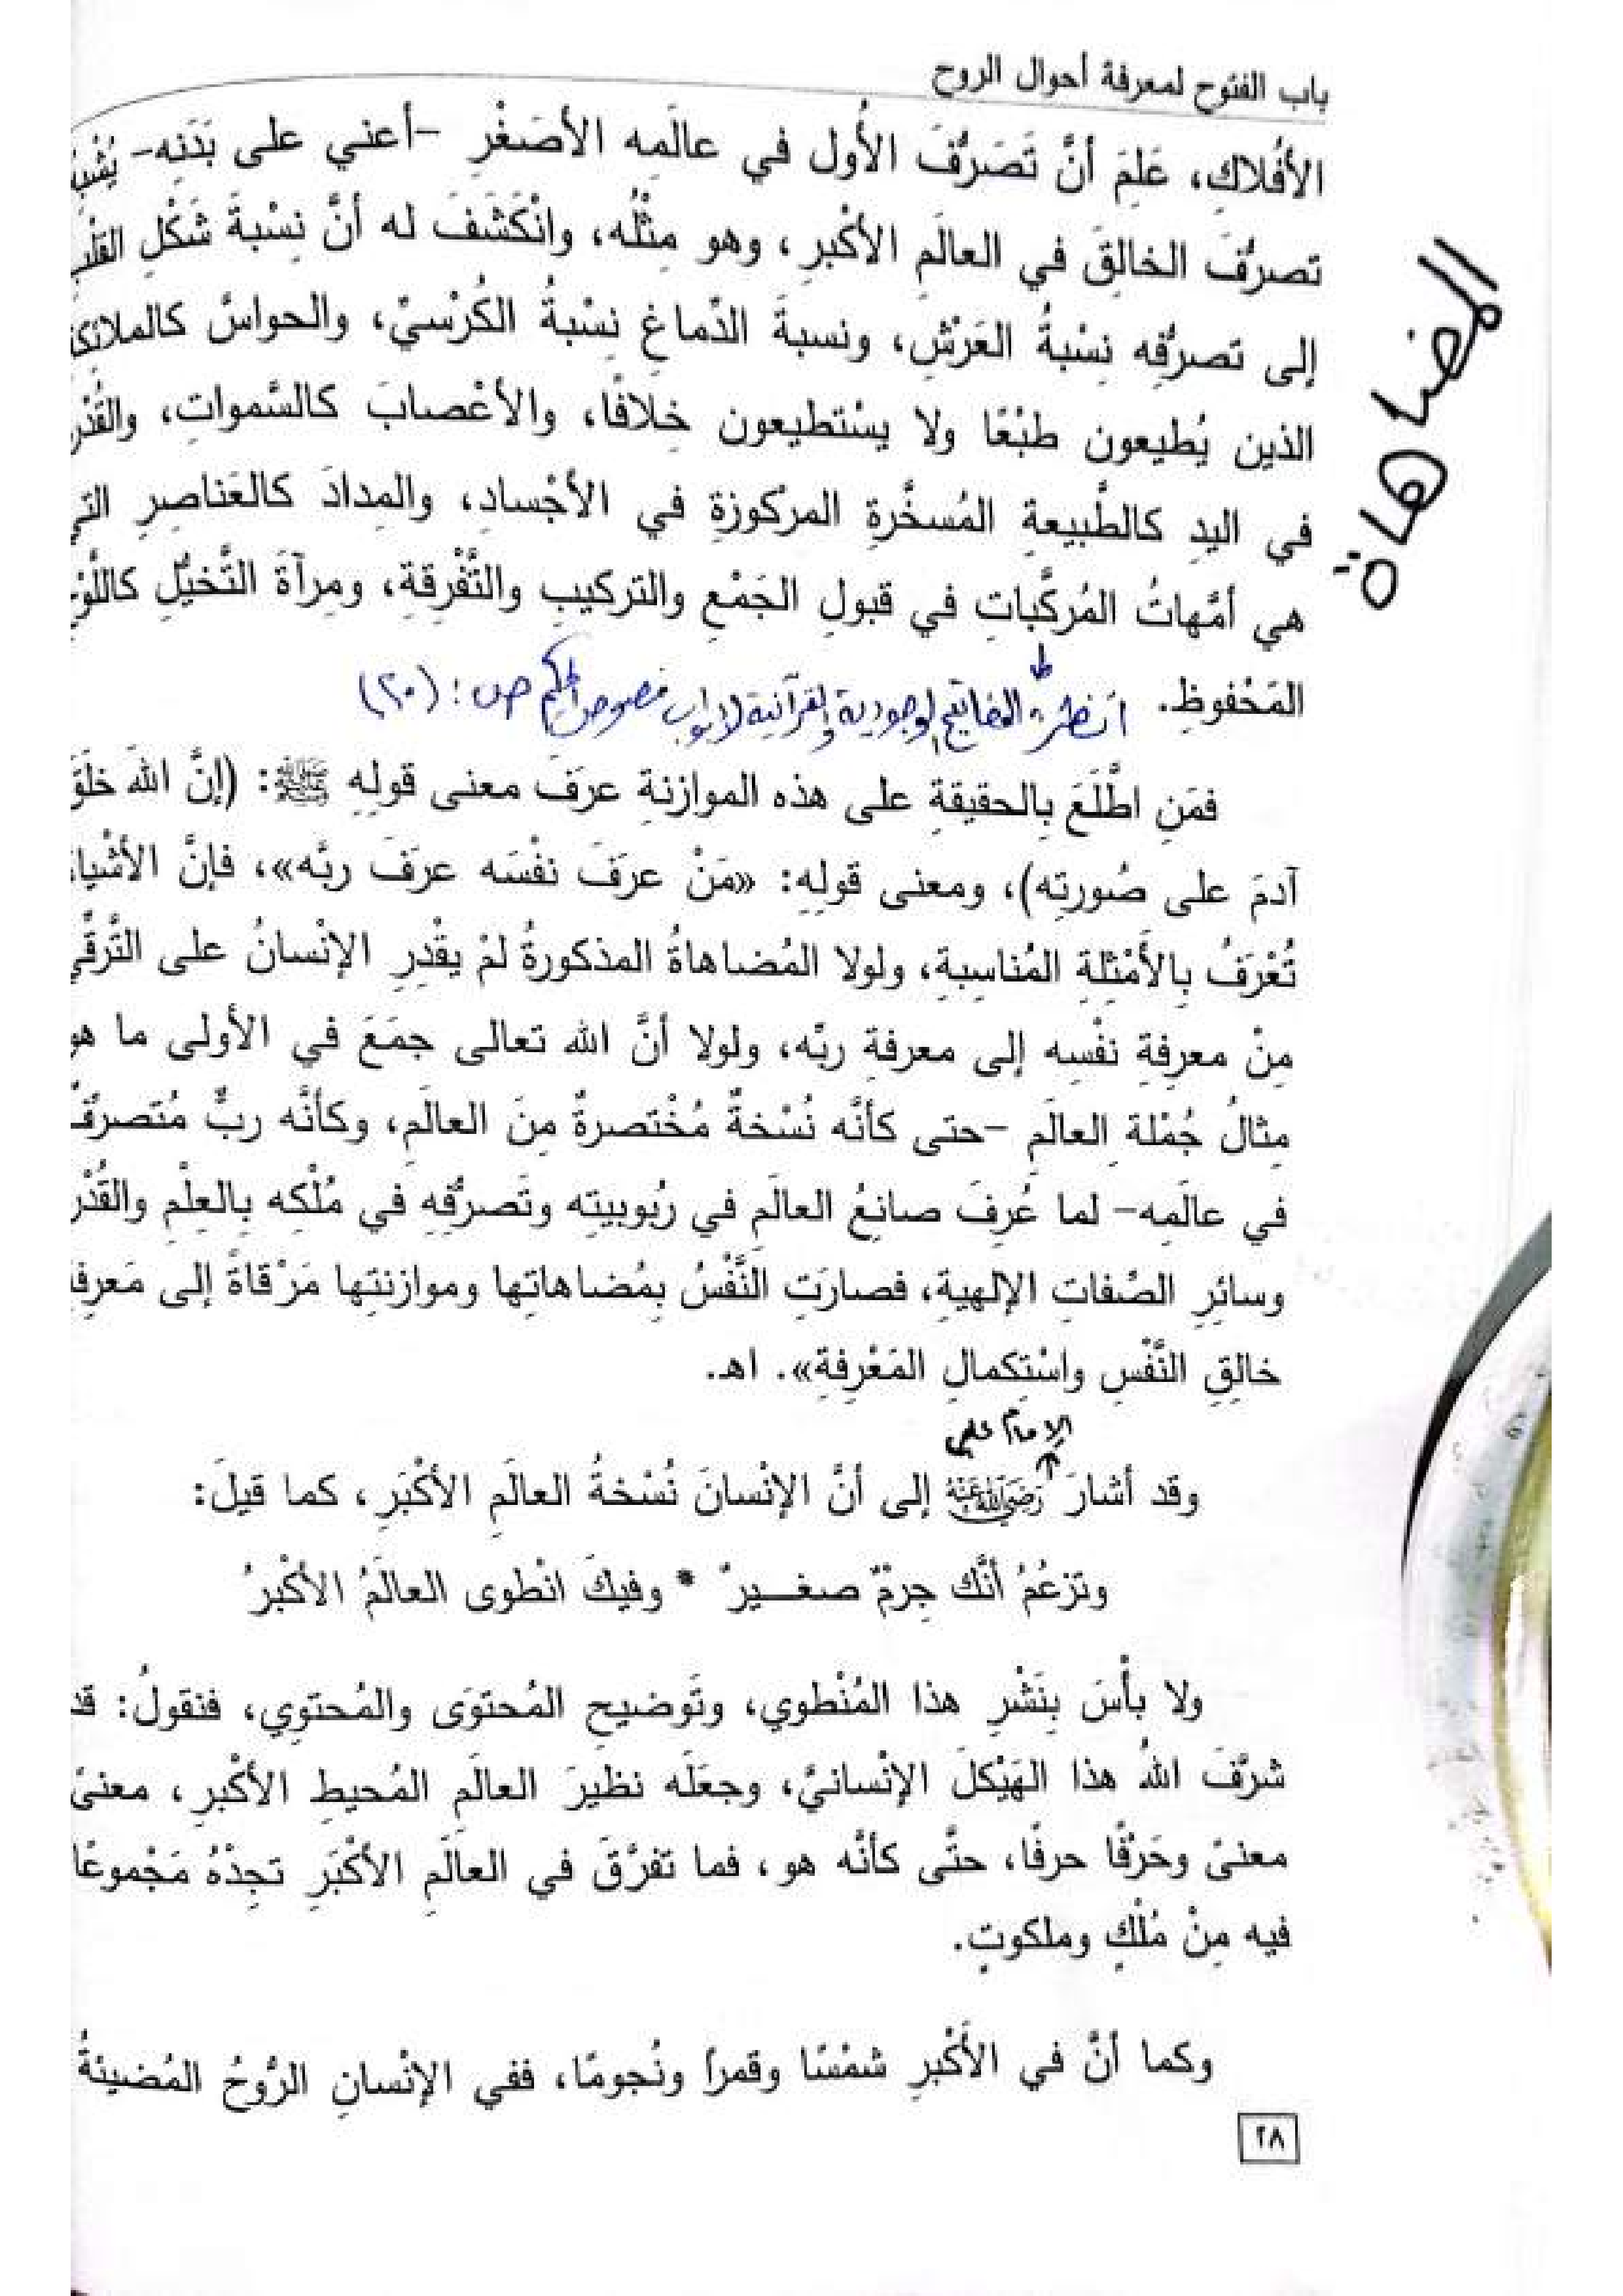 باب الفتوح لمعرفة أحوال الروح
الأفْلاكِ، عَلِمَ أنَّ تَصَرُّفَ الأُول في عالَمِه الأصَغْرِ –أعني على بَدَنِه–
تصرُّفَ الخالِقَ في العالَمِ الأكْبرِ، وهو مِثْلُه، وانْكَشَفَ له أنَّ نِسْبةَ شَكْلِ القَلْبِ
إلى تصرُّفِه نِسْبةُ العَرْشِ، ونسبةَ الدِّماغِ نِسْبةُ الكُرْسيِّ، والحواسَّ كالملائِكةِ
الذين يُطيعون طَبْعًا ولا يسْتطيعون خِلافًا، والأعْصابَ كالسَّمواتِ،
في اليدِ كالطَّبيعةِ المُسخَّرةِ المرْكوزةِ في الأجْسادِ، والمِدادَ كالعَناصِرِ التي
هي أمَّهاتُ المُركَّباتِ في قبولِ الجَمْعِ والتركيبِ والتَّفْرِقةِ، ومِرآةَ التَّخيُّلِ كاللَّوْحِ
المَحْفوظِ. انظر: المفاتيح الوجودية والقرآنية لأبواب فصوص الحكم ص: (٢٠)
المضاهاة
فمَنِ اطَّلَعَ بِالحقيقةِ على هذه الموازنةِ عرَفَ معنى قولِهِ ﷺ: (إنَّ اللهَ خلَقَ
آدمَ على صُورتِه)، ومعنى قولِهِ: «مَنْ عرَفَ نفْسَه عرَفَ ربَّه»، فإنَّ الأشْياءَ
تُعْرَفُ بِالأَمْثِلةِ المُناسِبةِ، ولولا المُضاهاةُ المذكورةُ لمْ يقْدِرِ الإنْسانُ على التَّرقِّي
مِنْ معرِفةِ نفْسِه إلى معرفةِ ربِّه، ولولا أنَّ الله تعالى جمَعَ في الأولى ما هو
مِثالُ جُمْلةِ العالَمِ –حتى كأنَّه نُسْخةٌ مُخْتصرةٌ مِنَ العالَمِ، وكأنَّه ربٌّ مُتصرِّفٌ
في عالَمِه– لما عُرِفَ صانِعُ العالَمِ في رُبوبيتِه وتَصرُّفِهِ في مُلْكِه بِالعِلْمِ والقُدْرةِ
وسائِرِ الصِّفاتِ الإلهيةِ، فصارَتِ النَّفْسُ بِمُضاهاتِها وموازنتِها مَرْقاةً إلى مَعرِفةِ
خالِقِ النَّفْسِ واسْتِكمالِ المَعْرِفةِ». اهـ.
الإمام علي
وقد أشارَ رَضِيَ اللهُ عَنْهُ إلى أنَّ الإنْسانَ نُسْخةُ العالَمِ الأكْبَرِ، كما قيلَ:
وتزعُمُ أنَّك جِرمٌ صغـــيرٌ * وفيكَ انْطوى العالَمُ الأكْبرُ
ولا بأْسَ بِنَشْرِ هذا المُنْطوي، وتَوضيحِ المُحتوَى والمُحتوِي، فنقولُ: قد
شرَّفَ اللهُ هذا الهَيْكلَ الإنْسانيَّ، وجعَلَه نظيرَ العالَمِ المُحيطِ الأكْبرِ، معنىً
معنىً وحَرْفًا حرفًا، حتَّى كأنَّه هو، فما تفرَّقَ في العالَمِ الأكْبَرِ تجِدْهُ مَجْموعًا
فيه مِنْ مُلْكٍ وملكوتٍ.
وكما أنَّ في الأَكْبرِ شمْسًا وقمرًا ونُجومًا، ففي الإنْسانِ الرُّوحُ المُضيئةُ
٢٨